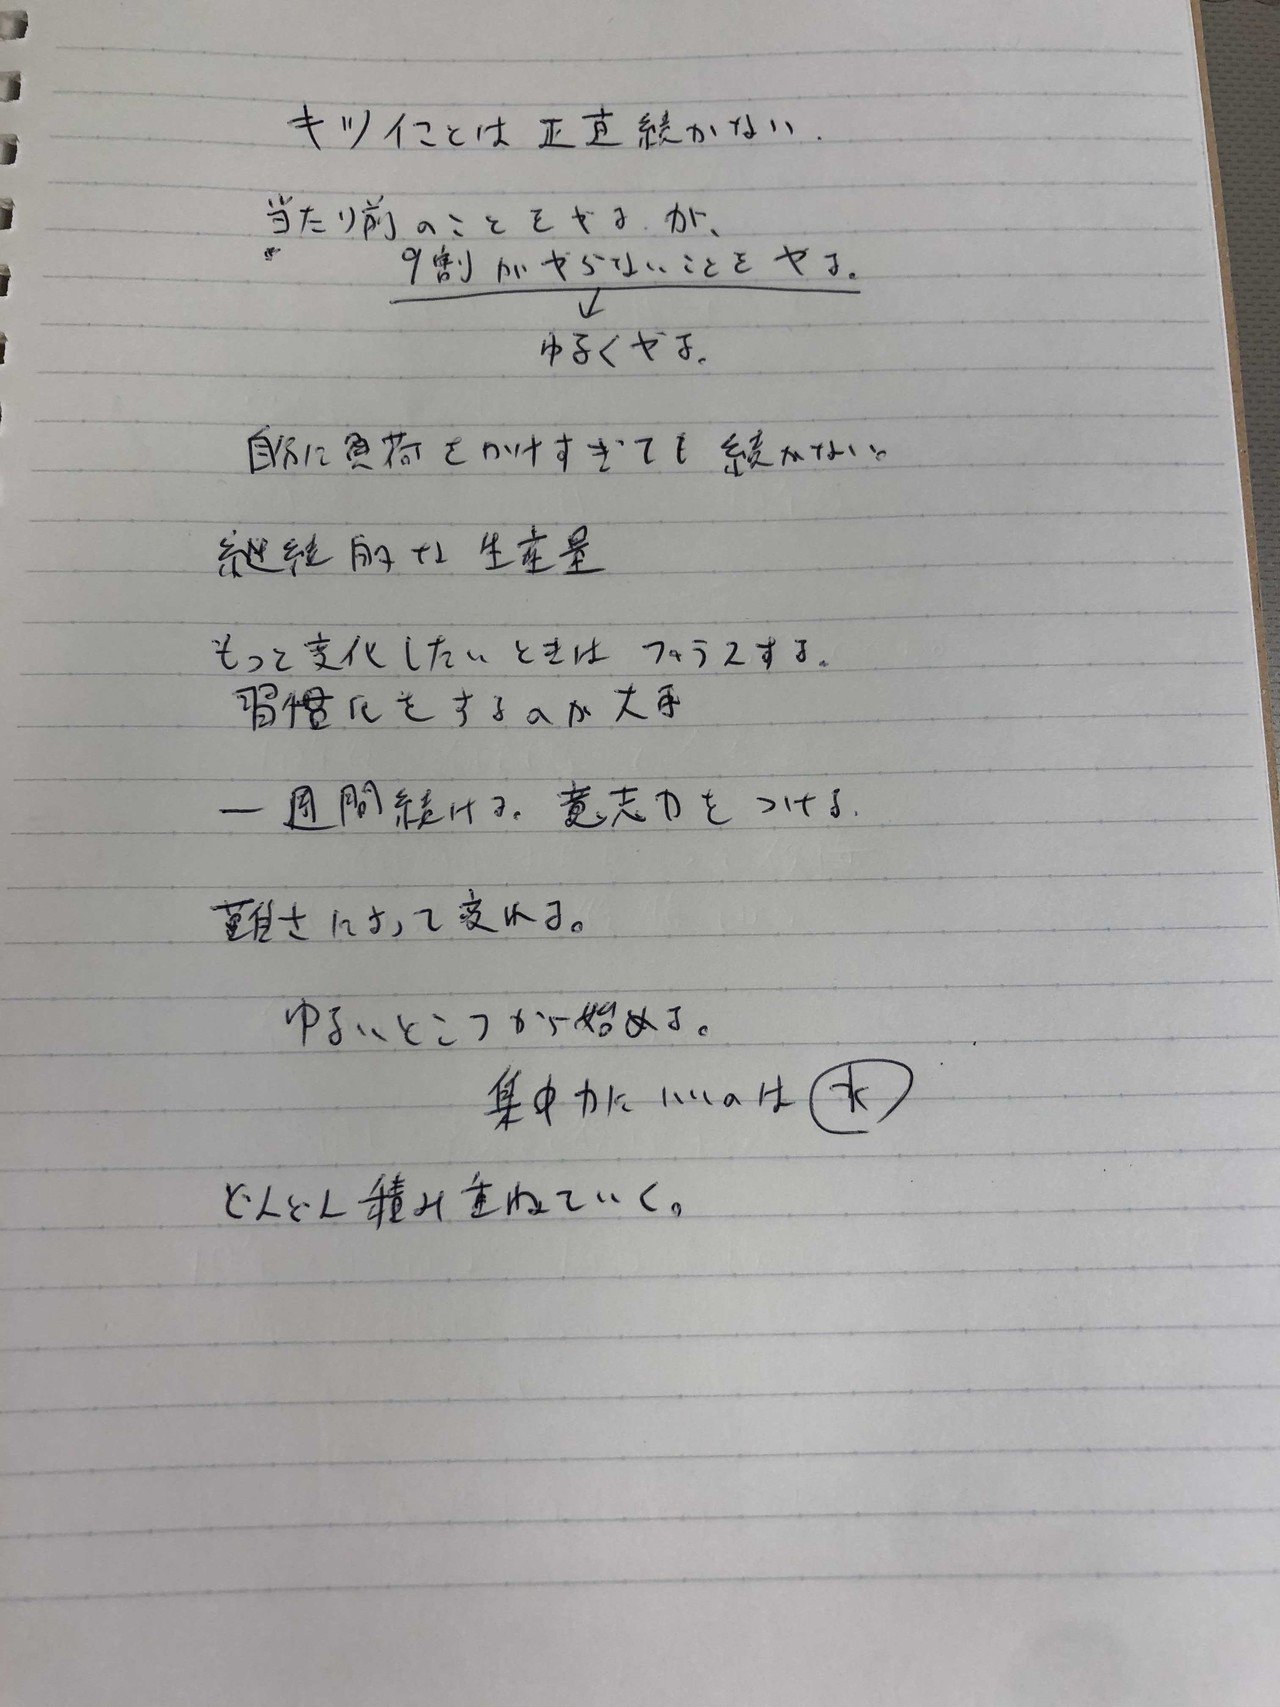 キツイことは正直続かない.
当たり前のことをやるが、
9割がやらないことをやる。
ゆるくやる.
自分に負荷をかけすぎても続かない。
継続的な生産量
もっと変化したいときはプラスする.
習慣化をするのが大事
一週間続ける. 意志力をつける.
難さによって変わる。
ゆるいところから始める。
集中力にいいのは 水
どんどん積み重ねていく。